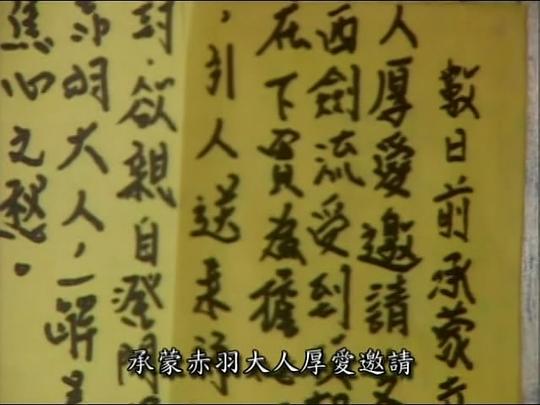 數日前承蒙
人厚愛邀請
西劍流受到
在下實為擔
，引人送來
欲親自澄
赤羽大人，一解
焦心之愁。
承蒙赤羽大人厚愛邀請